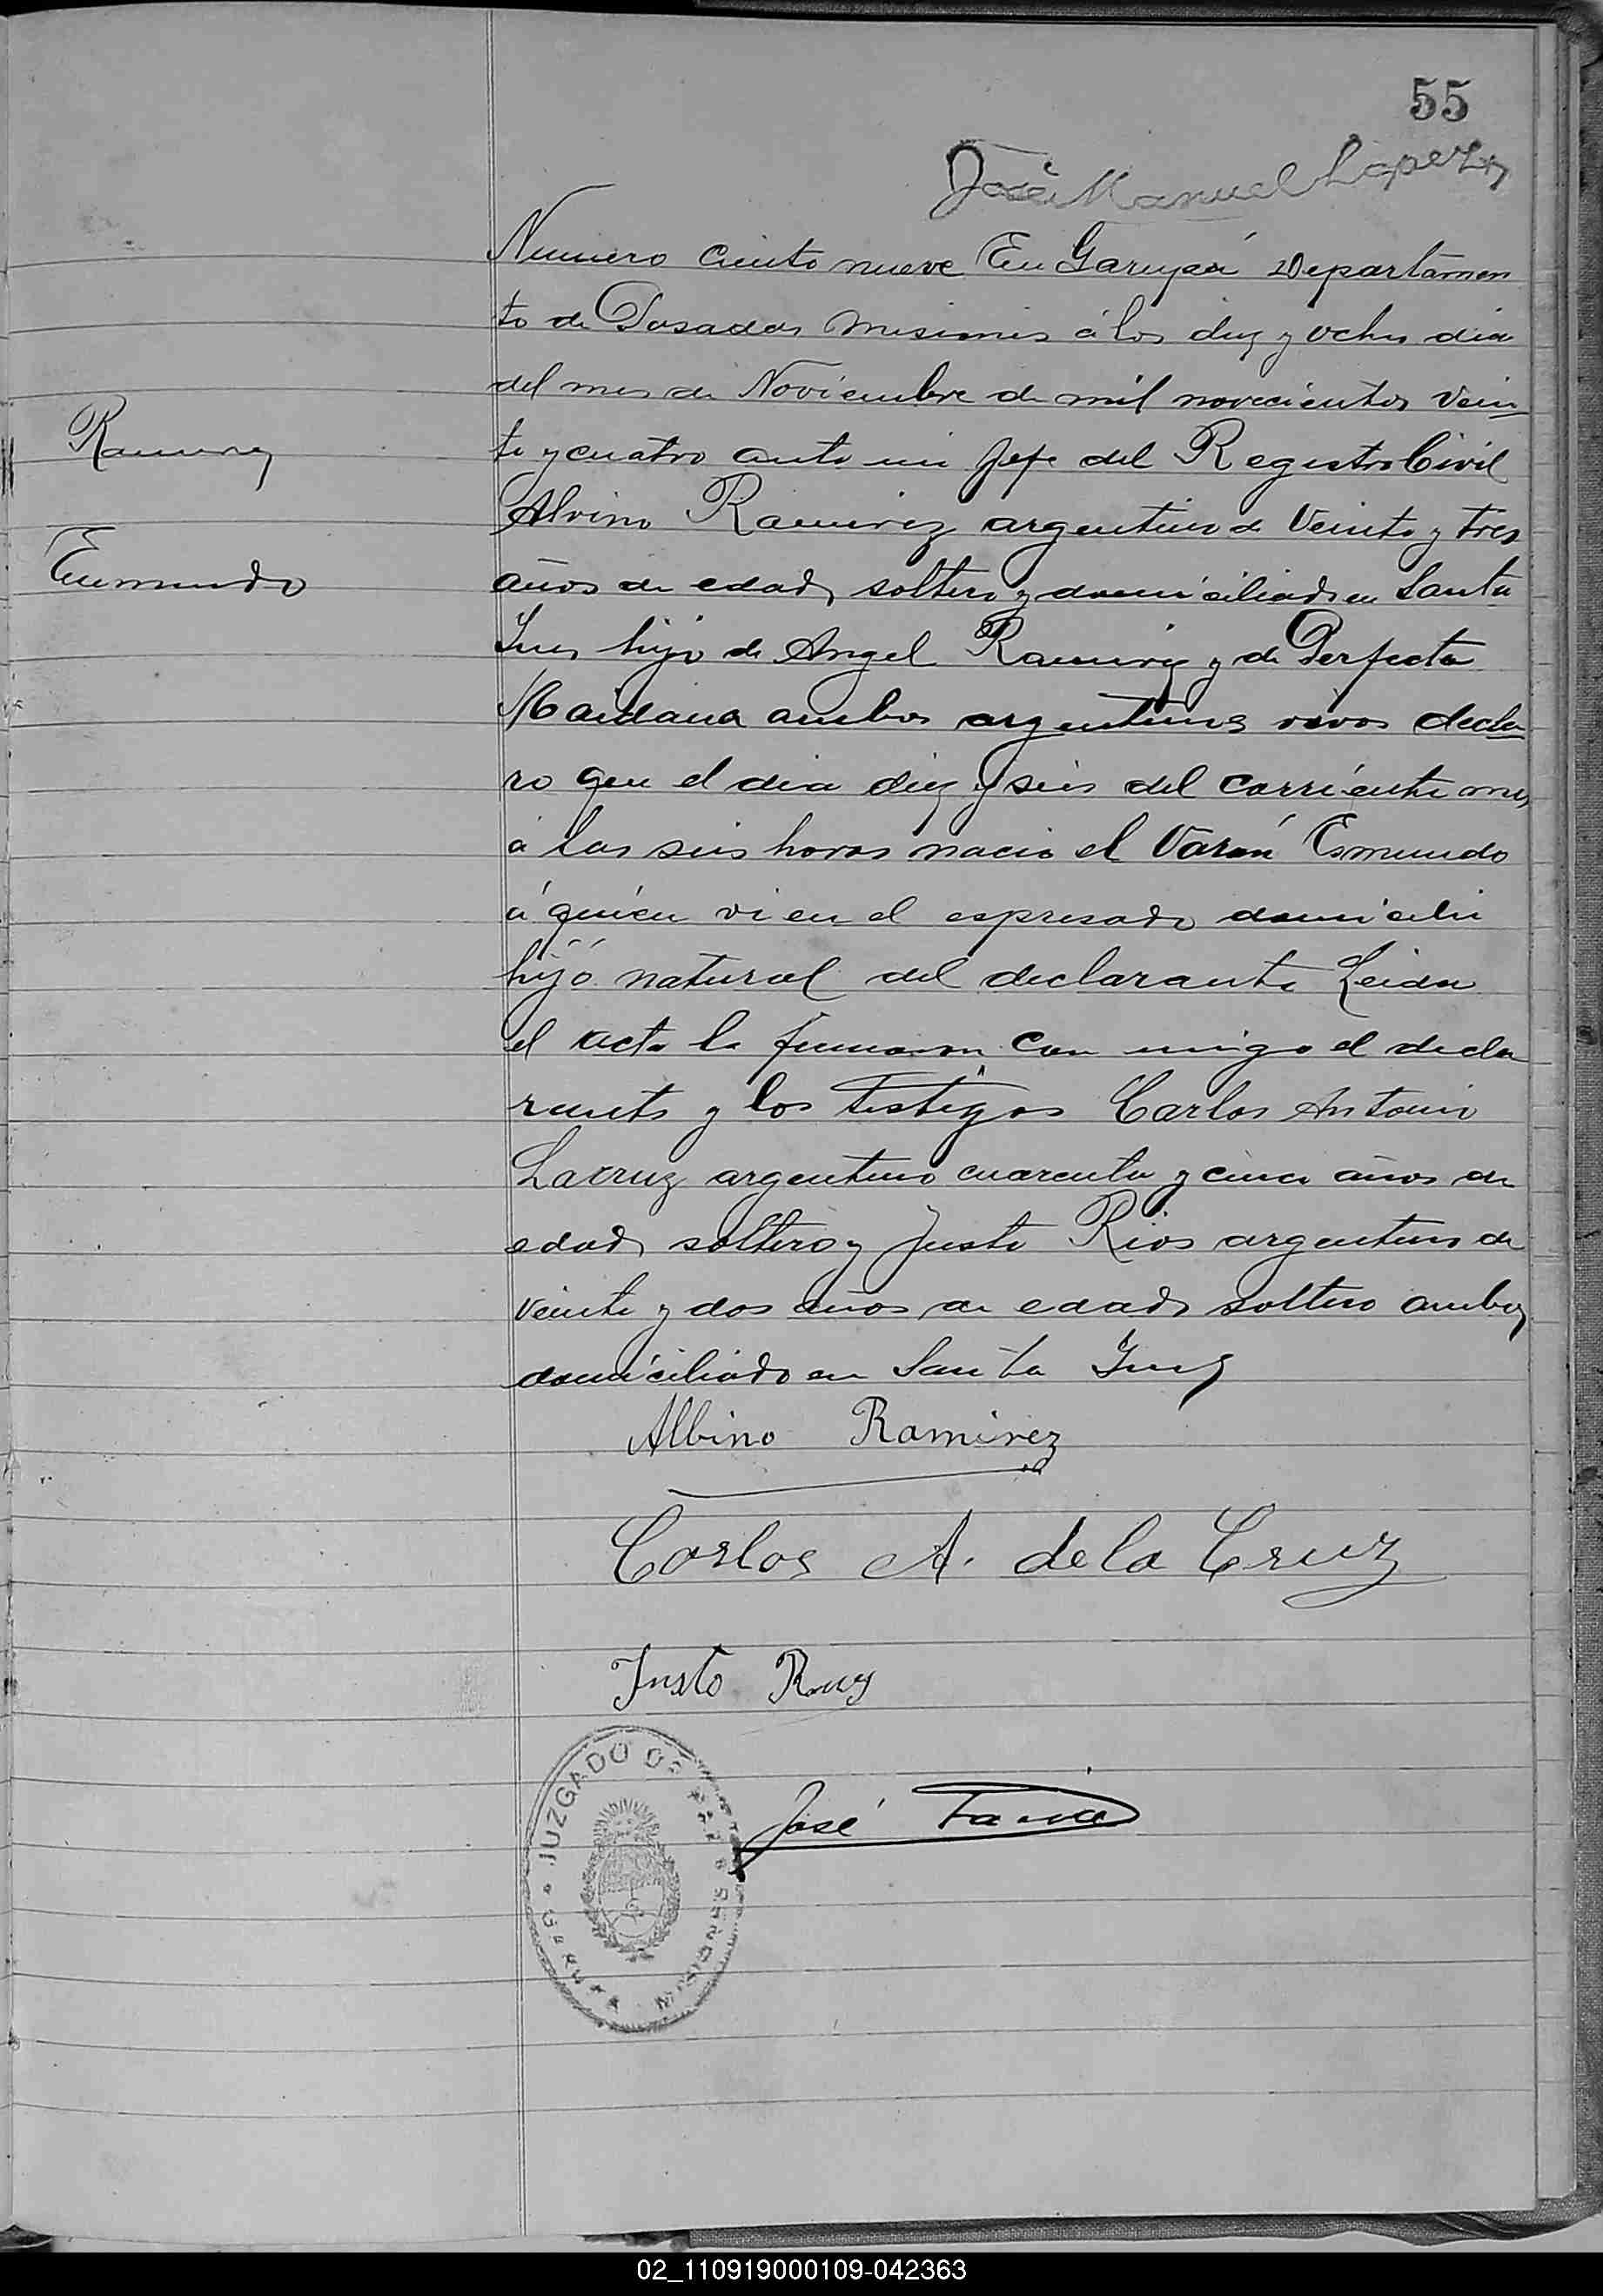 55
José Manuel Lopez
Numero ciento nueve En Garupá Departamen
to de Posadas Misiones á los diez y ocho dia
del mes de Noviembre de mil novecientos Vein
te y cuatro ante mi Jefe del Registro Civil
Ramirez
Alvino Ramirez argentino de Veinte y tres
Esmundo
años de edad soltero y domiciliado en Santa
Ines hijo de Angel Ramirez y de Perfecta
Maidana ambos argentinos vivos decla
ro que el dia diez y seis del corriente mes
á las seis horas nacio el Varón Esmundo
á quien vi en el espresado domicilio
hijo natural del declarante Leida
el acta la firmaron con migo el decla
rante y los testigos Carlos Antonio
Lacruz argentino cuarenta y cinco años de
edad soltero y Justo Rios argentino de
Veinte y dos años de edad soltero ambos
domiciliado en Santa Ines
Albino Ramirez
Carlos A. de la Cruz
Justo
JUZGADO DE PAZ
GARUPA MISIONES
José
02_110919000109-042363